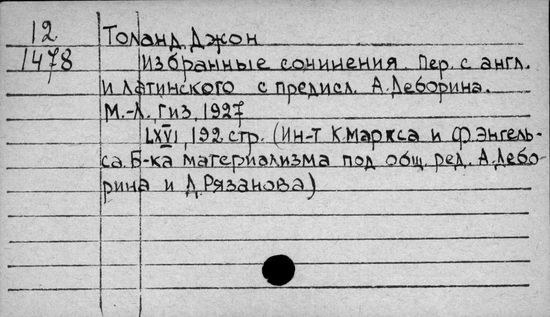 12 Толанд Джон
1478 Избранные сочинения Пер. с англ.
и латинского с предисл. А. Деборина.
М.-Л. Гиз, 1927
LXVI, 192 стр. (Ин-т К Маркса и Ф. Энгель-
са. Б-ка материализма под общ. ред. А. Дебо-
рина и Д. Рязанова)